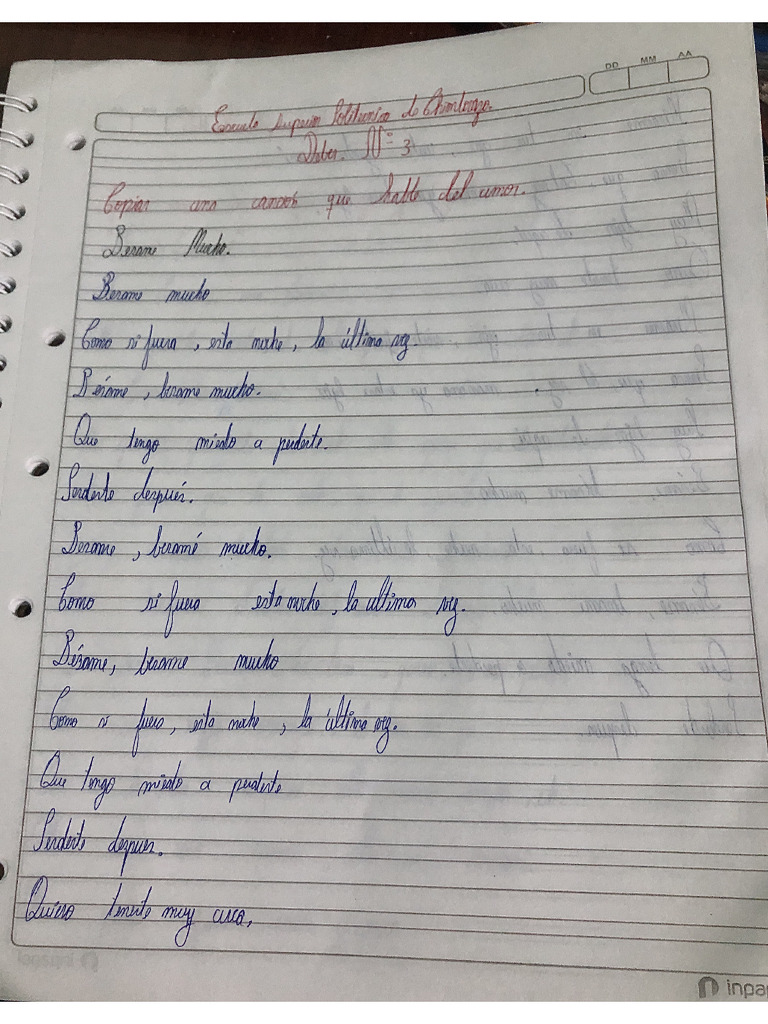 DD MM AA
Escuela Superior Politecnica de Chimborazo.
Deber. N° 3
Copiar una canción que hable del amor.
Besame Mucho.
Besame mucho
Como si fuera, esta noche, la última vez.
Bésame, besame mucho.
Que tengo miedo a perderte.
Perderte después.
Besame, besamé mucho.
Como si fuera esta noche, la ultima vez.
Bésame, besame mucho
Como si fuera, esta noche, la última vez.
Que tengo miedo a perderte
Perderte despues.
Quiero tenerte muy cerca,
inpa